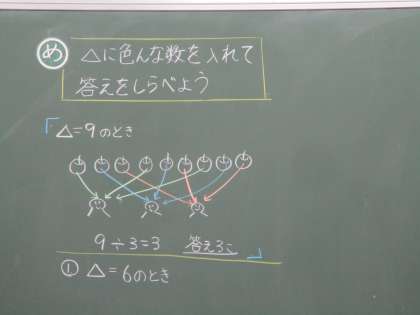 め △に色んな数を入れて
答えをしらべよう
「△=9のとき
9÷3=3 答え3こ」
① △=6のとき